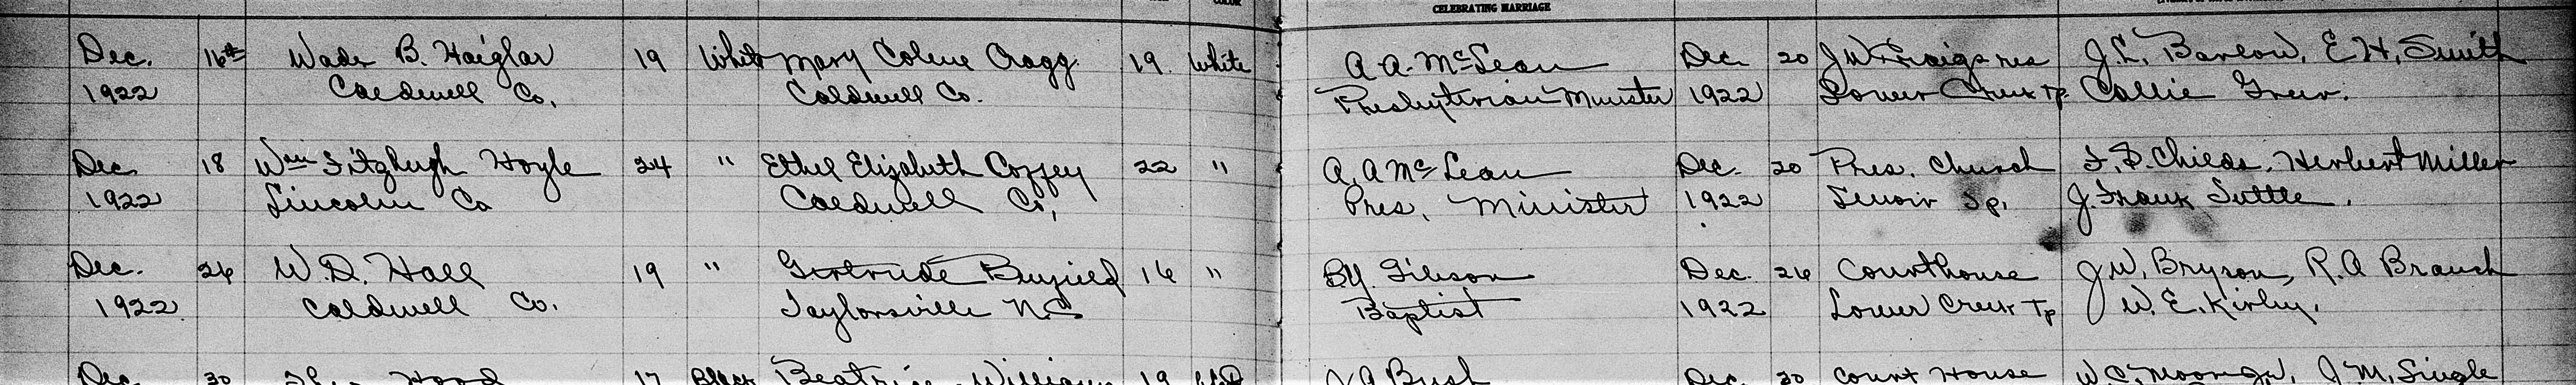 COLOR CELEBRATING MARRIAGE
Dec. 16th Wade B. Haiglar 19 White Mary Colene Cragg 19 White A. A. McLean Dec. 20 J. W. res J. L. Barlow, E. H. Smith
1922 Caldwell Co. Caldwell Co. Presbyterian Minister 1922 Lower Creek Tp. Callie Greer.
Dec 18 Wm Fitzhugh Hoyle 24 " Ethel Elizabeth Coffey 22 " A. A. McLean Dec. 20 Pres. Church Childs, Herbert Miller
1922 Lincoln Co Caldwell Co, Pres. Minister 1922 Lenoir Tp. J. Frank Suttle.
Dec. 26 W. D. Hall 19 " Gertrude 16 " Gibson Dec. 26 Courthouse J. W. Bryson, R. A Branch
1922 Caldwell Co. Taylorsville N.C Baptist 1922 Lower Creek Tp W. E. Kirby.
Dec 30 Hood 17 Black Beatrice Williams 19 A Bush Dec. 30 Court House W. C. Moore Jr, J. M. Single